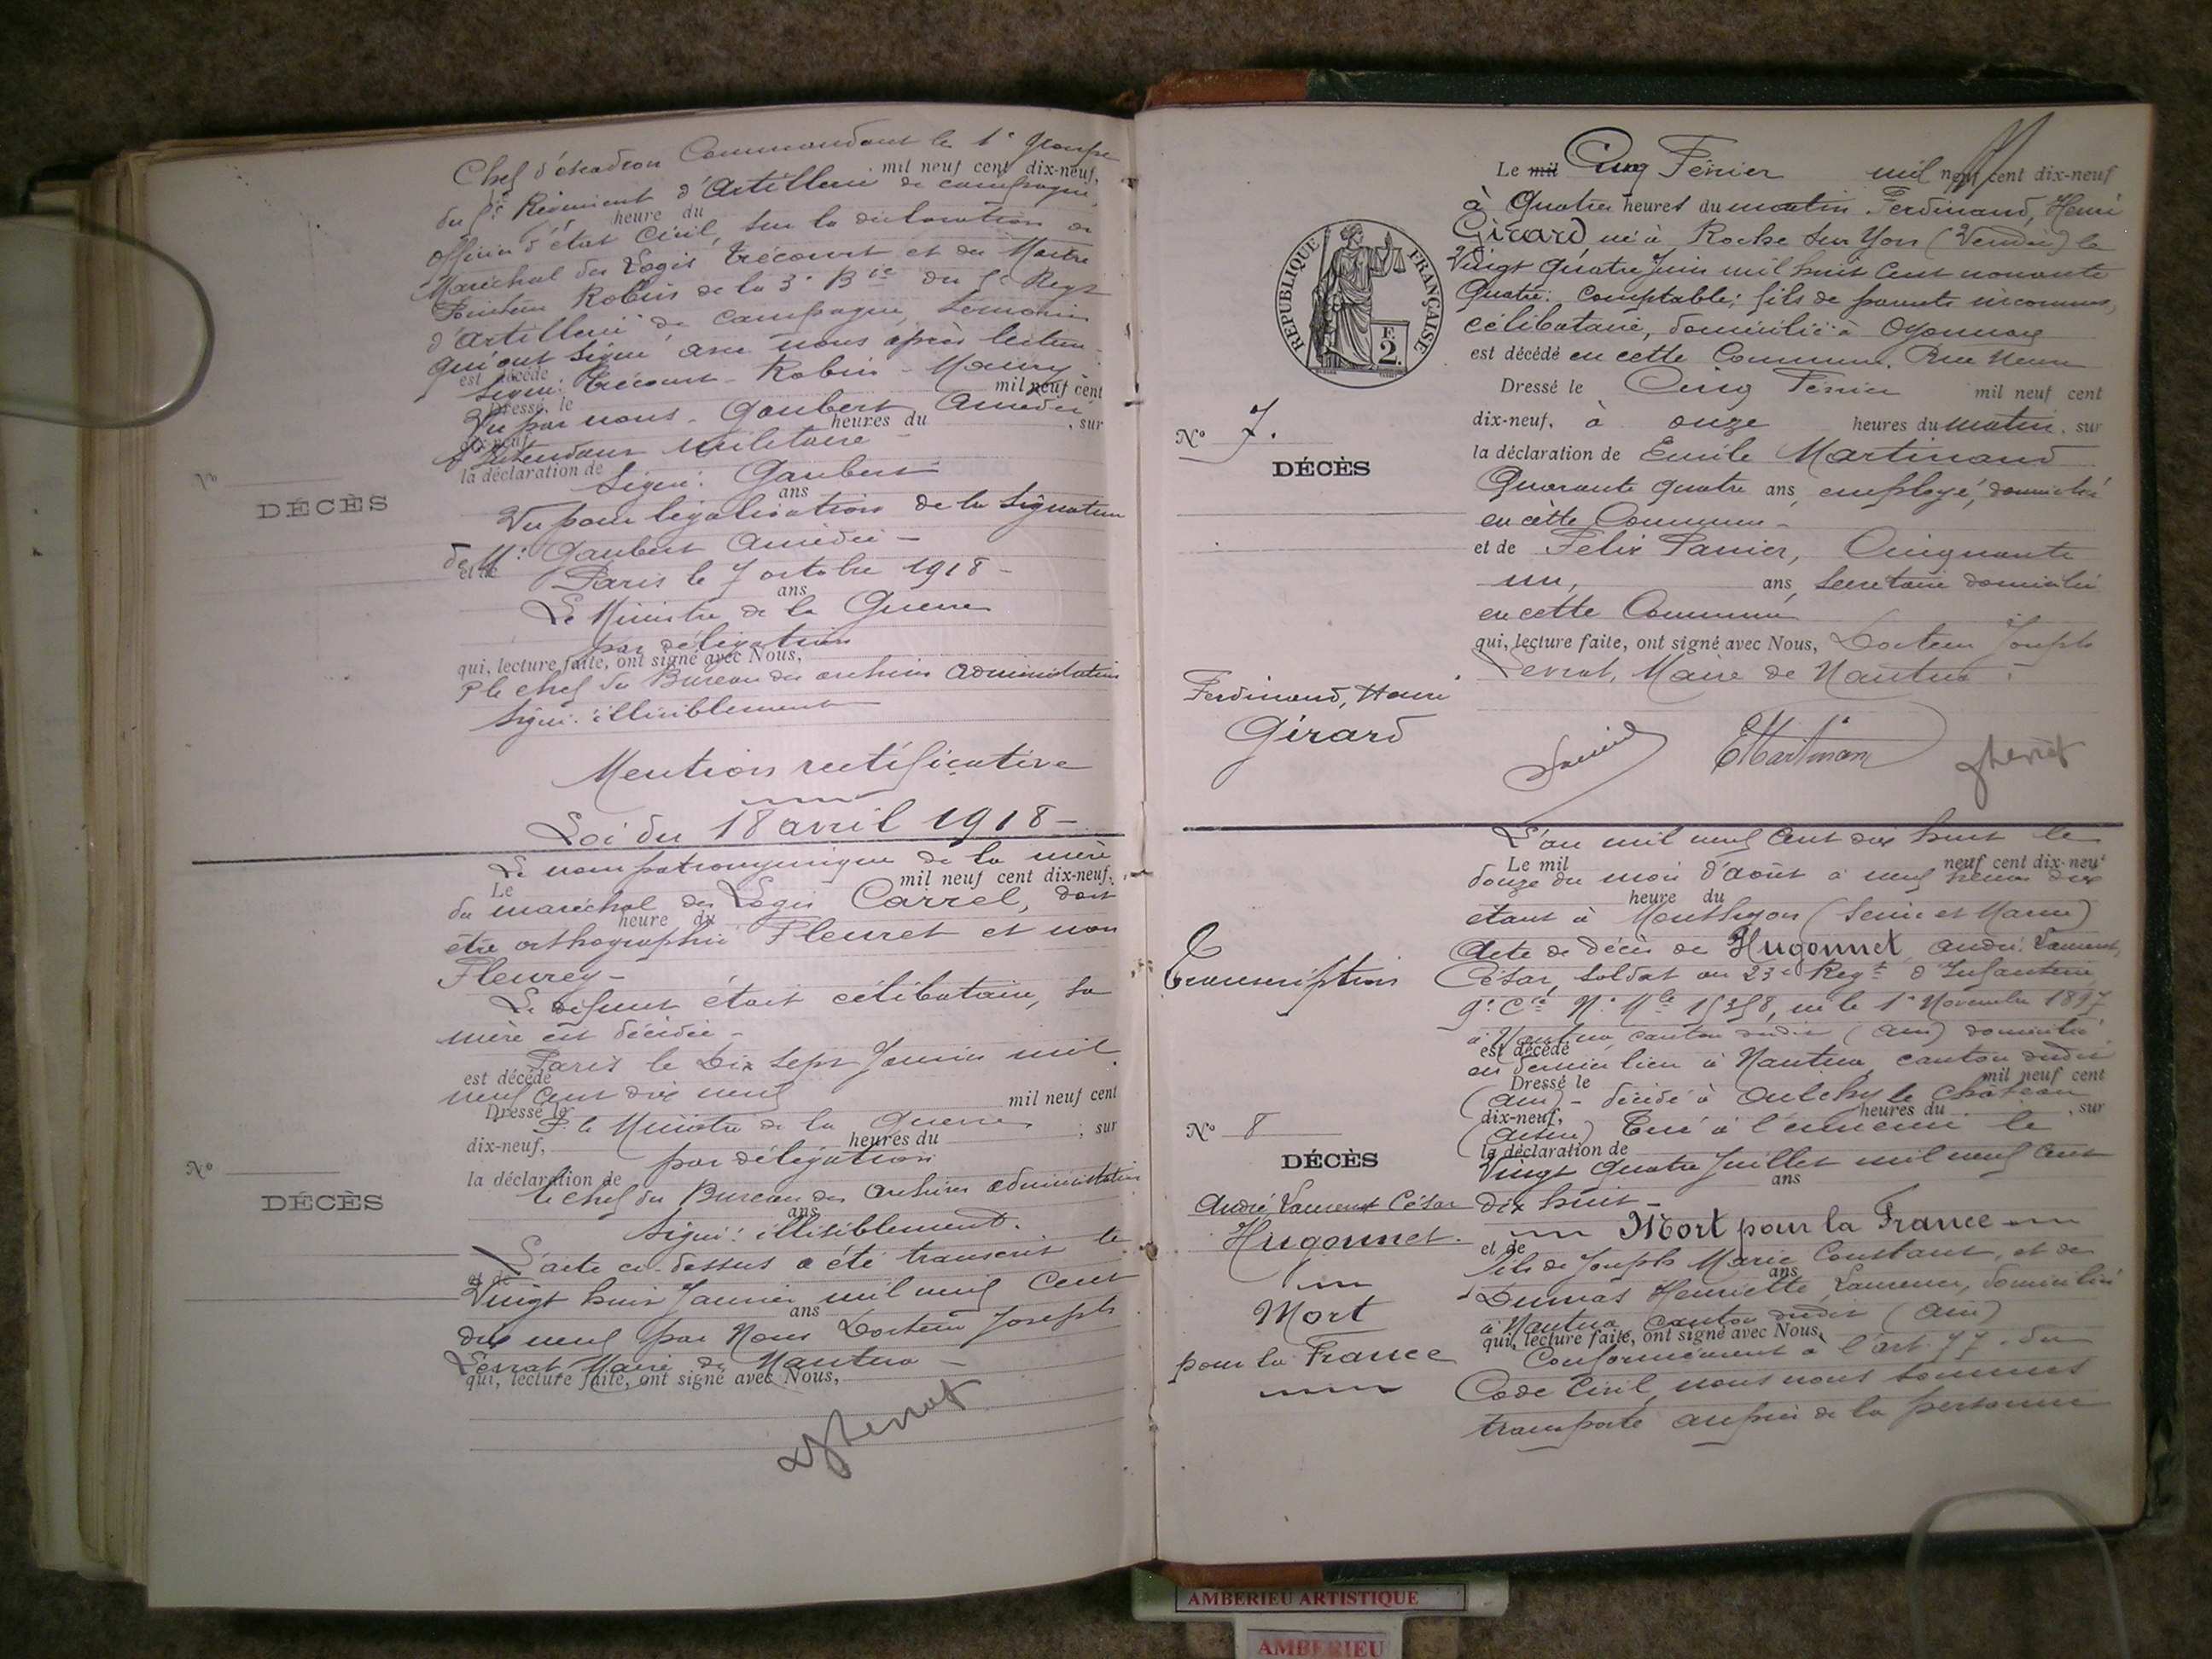 Chef d'escadron Commandant le 1e groupe
mil neuf cent dix-neuf,
du 5e Régiment d'Artillerie de campagne,
heure du
officier d'état civil, sur la déclaration du
Maréchal des Logis Trécourt et du Maitre
Pointeur Robin de la 3e Bie du 5e Regt
d'Artillerie de campagne, témoins
qui ont signé avec nous après lecture
est décédé
Signé: Trécourt - Robin - Maury
mil neuf cent
Dressé, le
Vu par nous - Gaubert Amédée
dix-neuf,
heures du , sur
Intendant militaire -
la déclaration de
Signé: Gaubert
ans
Vu pour légalisation de la signature
de M: Gaubert Amédée -
et de
Paris le 7 octobre 1918 -
ans
Le Ministre de la Guerre
par délégation
qui, lecture faite, ont signé avec Nous,
P le chef du Bureau des archives administratives
Signé: illisiblement
Mention rectificative
Loi du 18 avril 1918 -
No
DÉCÈS
Le nom patronymique de la mère
Le mil neuf cent dix-neuf,
du maréchal des Logis Carrel, doit
heure du
être orthographié Fleuret et non
Fleurey -
Le défunt était célibataire, sa
mère est décédée -
Paris le Dix Sept Janvier mil
est décédé
neuf cent dix neuf
Dressé le mil neuf cent
P. le Ministre de la Guerre
dix-neuf, heures du ; sur
par délégation
la déclaration de
le chef du Bureau des archives administratives
ans
Signé: illisiblement.
L'acte ci-dessus a été transcrit le
et de
Vingt huit Janvier mil neuf cent
ans
dix neuf par Nous Docteur Joseph
Levrat Maire de Nantua -
qui, lecture faite, ont signé avec Nous,
No
DÉCÈS
RÉPUBLIQUE FRANÇAISE
F.
2.
Le mil Cinq Février mil neuf cent dix-neuf
à Quatre heures du matin Ferdinand, Henri
Girard né à Roche sur Yon (Vendée) le
Vingt quatre Juin mil huit cent nonante
Quatre: comptable; fils de parents inconnus,
célibataire, domicilié à Oyonnax
est décédé en cette Commune, Rue Neuve
Dressé le Cinq Février mil neuf cent
dix-neuf, à onze heures du matin, sur
la déclaration de Emile Martinand
Quarante quatre ans, employé, domicilié
en cette Commune -
et de Felix Panier, Cinquante
un, ans, secrétaire domicilié
en cette Commune
qui, lecture faite, ont signé avec Nous, Docteur Joseph
Levrat, Maire de Nantua.
No 7.
DÉCÈS
Ferdinand, Henri
Girard
L'an mil neuf cent dix huit le
Le mil neuf cent dix-neuf
douze du mois d'août à neuf heures dix
heure du
étant à Monthyon (Seine et Marne)
Acte de décès de Hugonnet, André, Laurent,
César, soldat au 23e Regt d'Infanterie
9e Cie No Mle 15358, né le 1e Novembre 1897
à Nantua, canton dudit (Ain) domicilié
est décédé
en dernier lieu à Nantua, canton dudit
Dressé le mil neuf cent
(Ain) - décédé à Oulchy le Château
dix-neuf, heures du , sur
(Aisne) Tué à l'ennemi le
la déclaration de
Vingt quatre Juillet mil neuf cent
ans
Dix huit -
Mort pour la France
et de
fils de Joseph Marie Constant, et de
ans
Dumas Henriette, Laurence, domiciliés
à Nantua, canton dudit (Ain)
qui, lecture faite, ont signé avec Nous,
Conformément à l'art. 77 du
Code Civil, nous nous sommes
transporté auprès de la personne
Transcription
No 8
DÉCÈS
André Laurent César
Hugonnet.
Mort
pour la France
AMBERIEU ARTISTIQUE
AMBERIEU